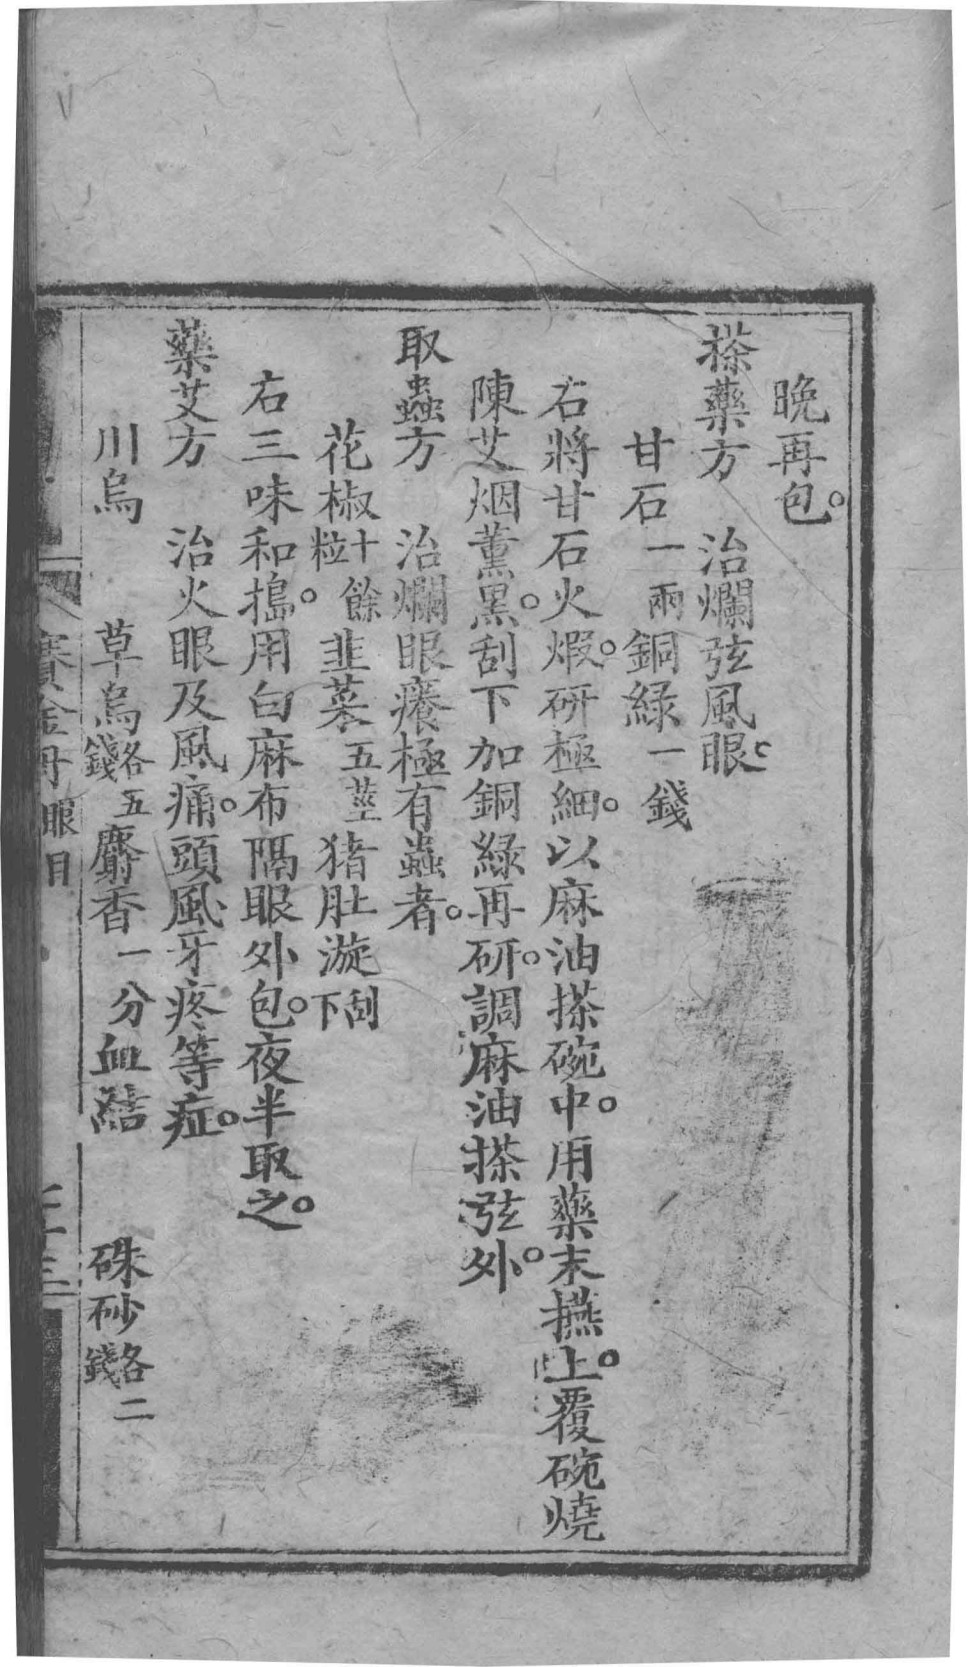 晚再包。
搽藥方　治爛弦風眼。
甘石一兩　銅綠一錢
右將甘石火煆。研極細。以麻油搽碗中。用藥末攇上。覆碗燒
陳艾烟薰黑。刮下加銅綠再研。調麻油搽弦外。
取蟲方　治爛眼癢極有蟲者。
花椒十餘粒　韭菜五莖　猪肚漩刮下
右三味和搗。用白麻布隔眼外包。夜半取之。
藥艾方　治火眼及風痛。頭風牙疼等症。
川烏　草烏各五錢　麝香一分　血結　硃砂各二錢
賽金丹　眼目